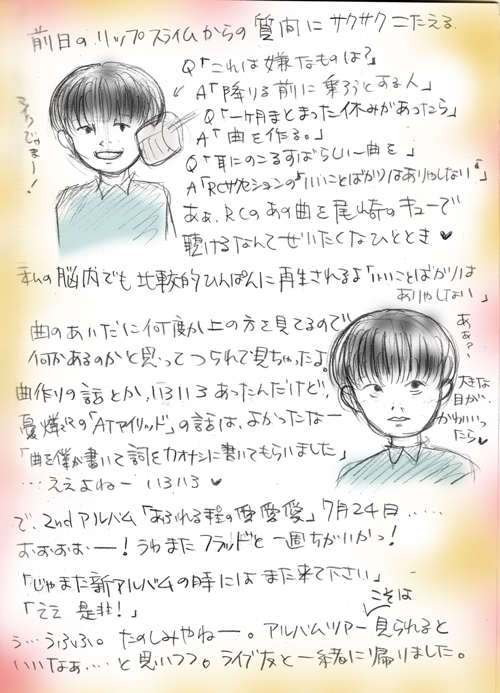 前日のリップスライムからの質問にサクサクこたえる
Q「これは嫌なものは?」
A「降りる前に乗ろうとする人」
Q「一ヶ月まとまった休みがあったら」
A「曲を作る。」
Q「耳にのこるすばらしい一曲を」
A「RCサクセションの『いいことばかりはありゃしない』」
ああ、RCのあの曲を尾崎のキューで
聴けるなんてぜいたくなひととき♥
マイクじゃまー!
私の脳内でも比較的ひんぱんに再生されるよ「いいことばかりは
ありゃしない」
曲のあいだに何度か上の方を見てるので
何かあるのかと思ってつられて見ちゃったよ。
あぁ?
大きな
目が、
かわいっ
たら♥
曲作りの話とか、いろいろあったんだけど、
憂燦々の「ATアイリッド」の話は、よかったなー
「曲を僕が書いて詞をカオナシに書いてもらいました」
…ええよねー いろいろ♥
で、2ndアルバム「あふれる程の愛愛愛」7月24日……
おおおおー!うわまたフラッドと一週ちがいかっ!
「じゃまた新アルバムの時にはまた来て下さい」
「ええ 是非!」
う…うふふ。たのしみやねー。アルバムツアーこそは見られると
いいなぁ…と思いつつ。ライブ友と一緒に帰りました。